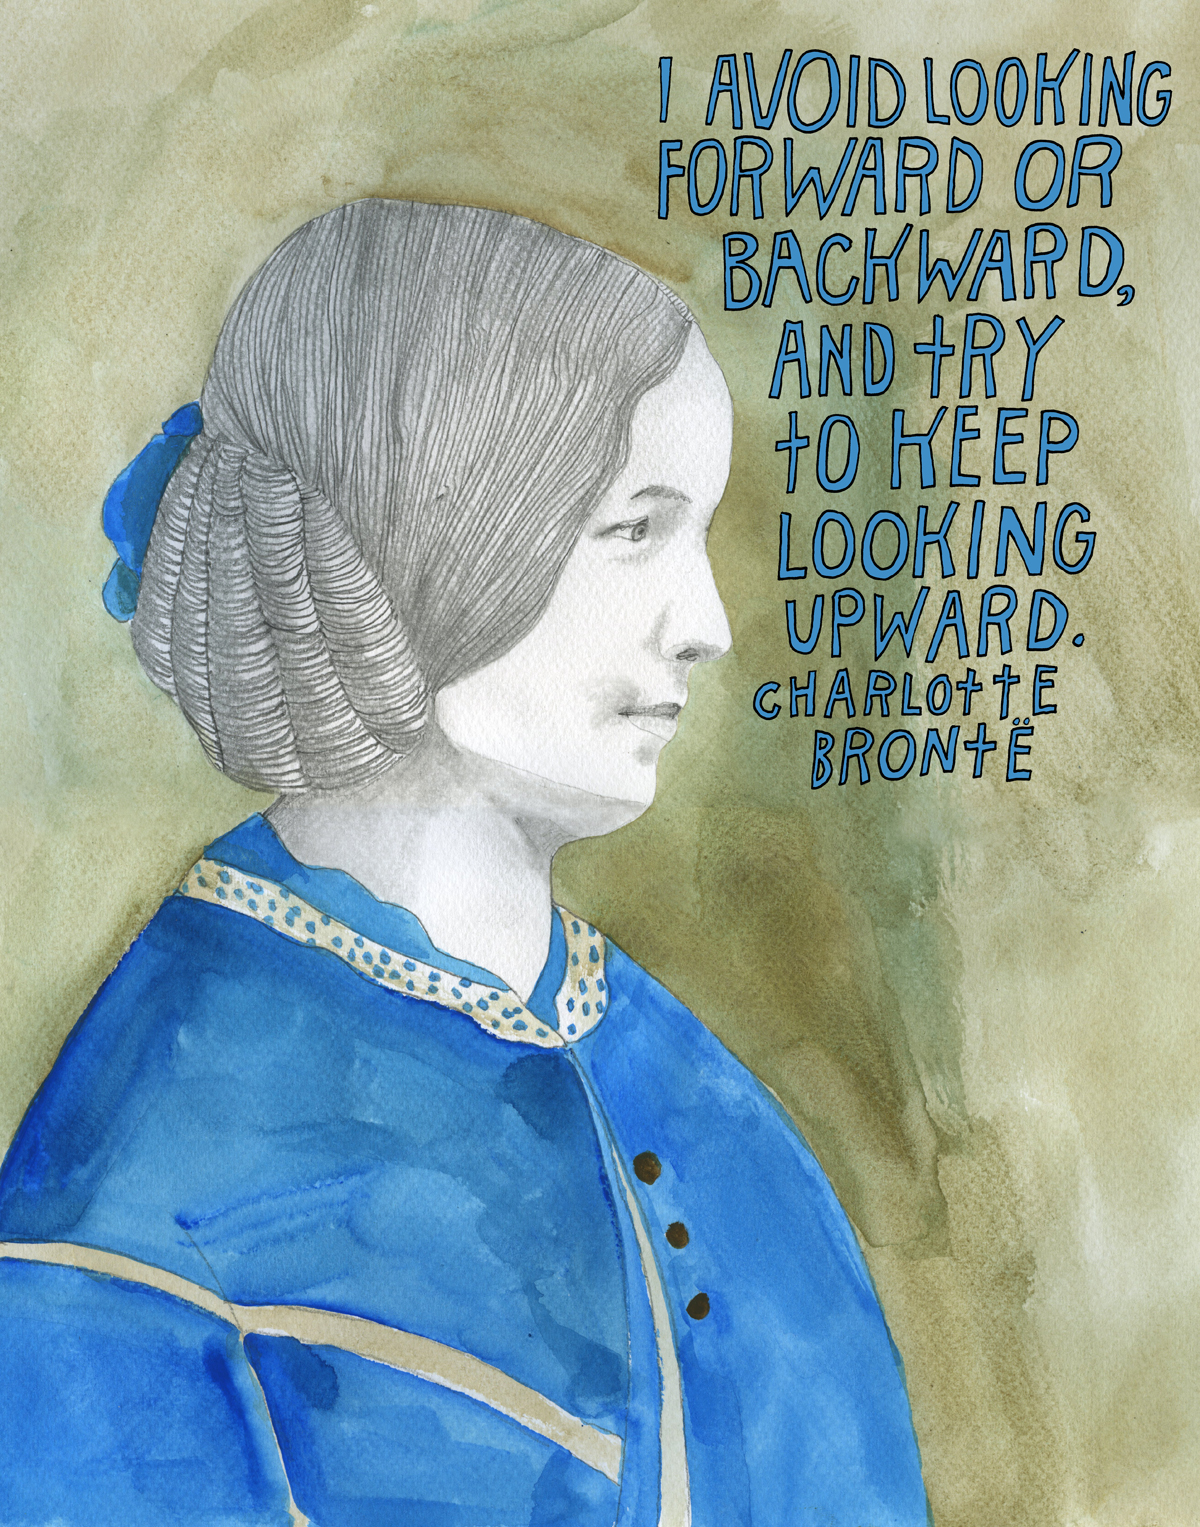 I AVOID LOOKING
FORWARD OR
BACKWARD,
AND TRY
TO KEEP
LOOKING
UPWARD.
CHARLOTTE
BRONTË